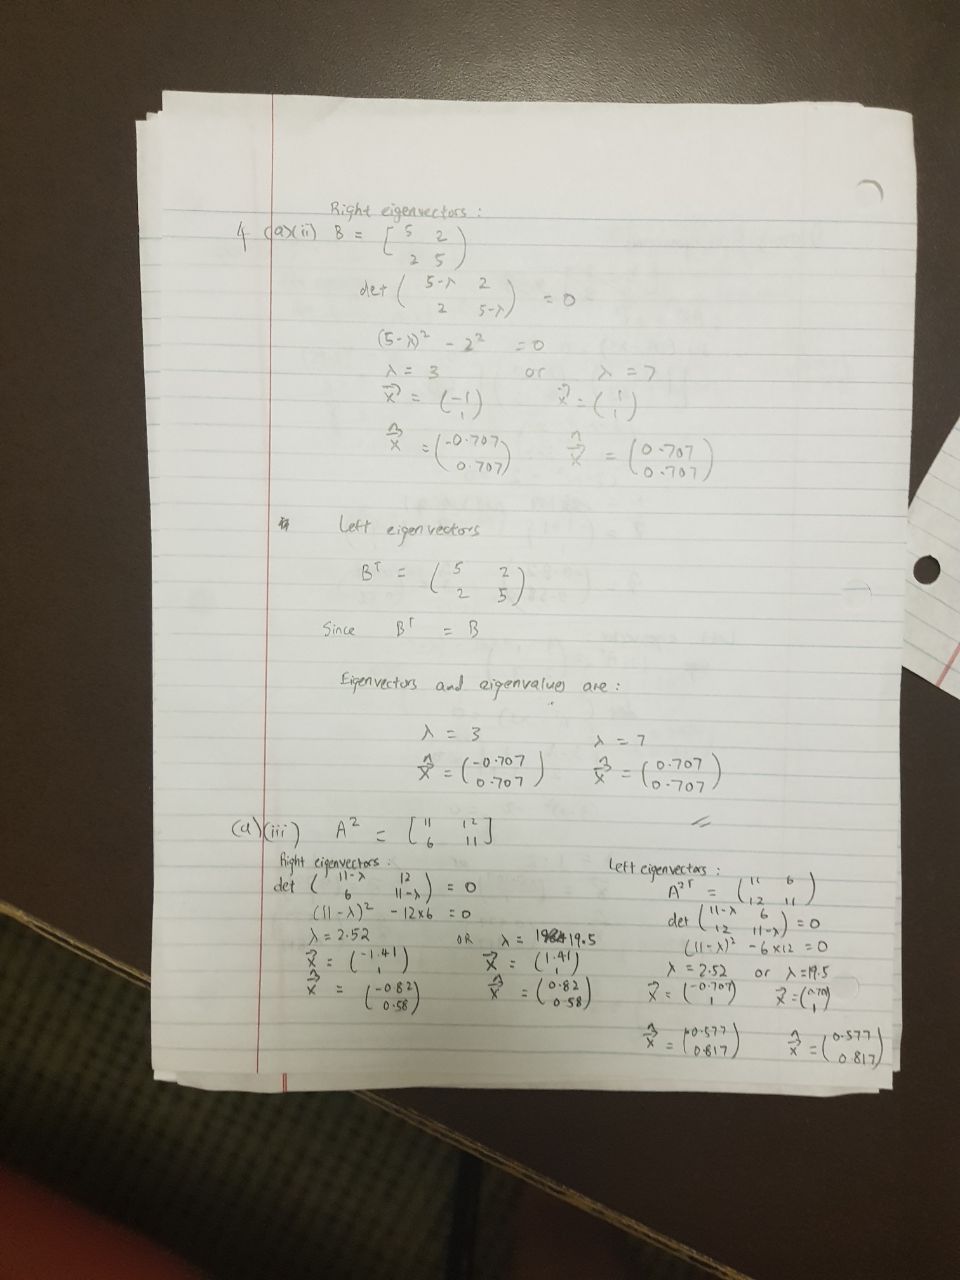 Right eigenvectors :
4 (a)(ii) B = [5 2
2 5)
det (5-λ 2
2 5-λ) = 0
(5-λ)² - 2² = 0
λ = 3 or λ = 7
x⃗ = (-1
1) x⃗ = (1
1)
x̂ = (-0.707
0.707) x̂ = (0.707
0.707)
Left eigenvectors
Bᵀ = (5 2
2 5)
Since Bᵀ = B
Eigenvectors and eigenvalues are :
λ = 3 λ = 7
x̂ = (-0.707
0.707) x̂ = (0.707
0.707)
(a)(iii) A² = [11 12
6 11]
Right eigenvectors :
det (11-λ 12
6 11-λ) = 0
(11-λ)² - 12×6 = 0
λ = 2.52 OR λ = 19.5
x⃗ = (-1.41
1) x⃗ = (1.41
1)
x̂ = (-0.82
0.58) x̂ = (0.82
0.58)
Left eigenvectors :
A²ᵀ = (11 6
12 11)
det (11-λ 6
12 11-λ) = 0
(11-λ)² - 6×12 = 0
λ = 2.52 or λ = 19.5
x⃗ = (-0.707
1) x⃗ = (0.707
1)
x̂ = (-0.577
0.817) x̂ = (0.577
0.817)